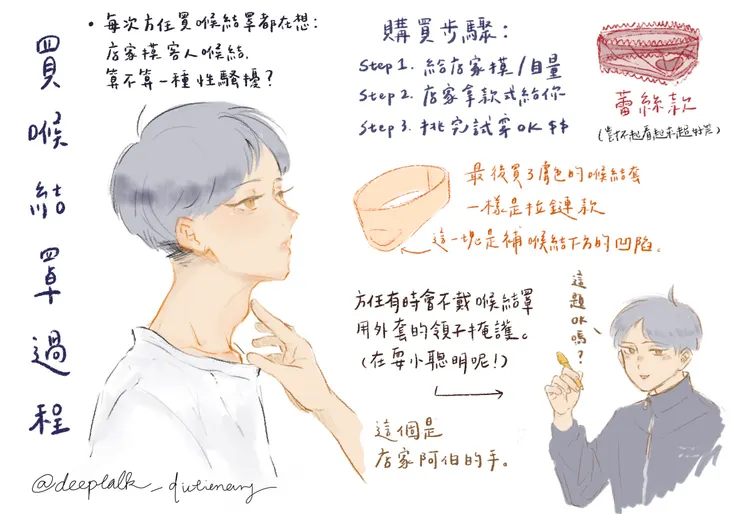 買喉結罩過程
• 每次方任買喉結罩都在想：
店家摸客人喉結，
算不算一種性騷擾？
購買步驟：
Step 1. 給店家摸/自量
Step 2. 店家拿款式給你
Step 3. 挑完試穿OK $$
蕾絲款
(對不起看起來超好笑)
最後買了膚色的喉結套
一樣是拉鏈款
這一塊是補喉結下方的凹陷。
方任有時會不戴喉結罩
用外套的領子掩護。
(在耍小聰明呢！)
這題OK嗎？
這個是
店家阿伯的手。
@deeptalk_